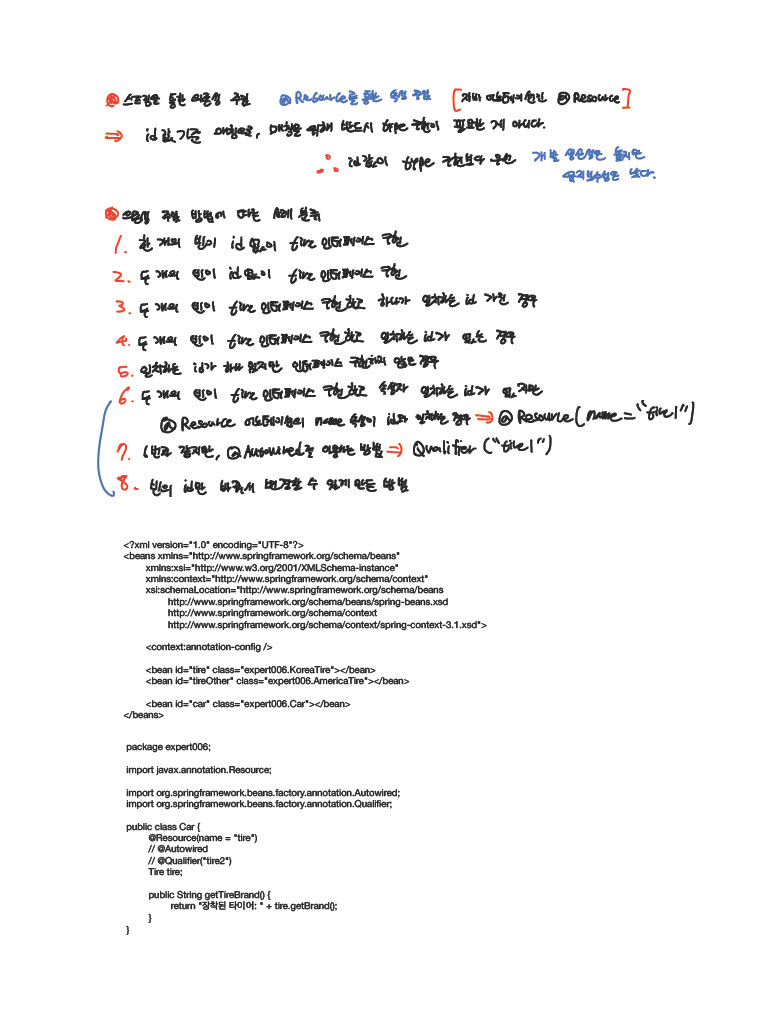 스프링을 통한 의존성 주입 @Resource를 통한 속성 주입 [자바 어노테이션인 @Resource]
⇒ id값 기준 매칭으로, 매칭을 위해 반드시 type 구현이 필요한 게 아니다.
∴ id값이 type 구현보다 우선 개발 생산성은 높지만
유지보수성은 낮다.
의존성 주입 방법에 따른 사례 분류
1. 한 개의 빈이 id 없이 tire 인터페이스 구현
2. 두 개의 빈이 id 없이 tire 인터페이스 구현
3. 두 개의 빈이 tire 인터페이스 구현하고 하나가 일치하는 id 가진 경우
4. 두 개의 빈이 tire 인터페이스 구현하고 일치하는 id가 없는 경우
5. 일치하는 id가 하나 있지만 인터페이스 구현하지 않은 경우
6. 두 개의 빈이 tire 인터페이스 구현하고 속성과 일치하는 id가 없지만
@Resource 어노테이션의 name 속성이 id와 일치하는 경우 ⇒ @Resource(name="tire1")
7. 6번과 같지만, @Autowired를 이용하는 방법 ⇒ Qualifier("tire1")
8. 빈의 id만 바꿔서 변경할 수 있게 만든 방법
<?xml version="1.0" encoding="UTF-8"?>
<beans xmlns="http://www.springframework.org/schema/beans"
xmlns:xsi="http://www.w3.org/2001/XMLSchema-instance"
xmlns:context="http://www.springframework.org/schema/context"
xsi:schemaLocation="http://www.springframework.org/schema/beans
http://www.springframework.org/schema/beans/spring-beans.xsd
http://www.springframework.org/schema/context
http://www.springframework.org/schema/context/spring-context-3.1.xsd">
<context:annotation-config />
<bean id="tire" class="expert006.KoreaTire"></bean>
<bean id="tireOther" class="expert006.AmericaTire"></bean>
<bean id="car" class="expert006.Car"></bean>
</beans>
package expert006;
import javax.annotation.Resource;
import org.springframework.beans.factory.annotation.Autowired;
import org.springframework.beans.factory.annotation.Qualifier;
public class Car {
@Resource(name = "tire")
// @Autowired
// @Qualifier("tire2")
Tire tire;
public String getTireBrand() {
return "장착된 타이어: " + tire.getBrand();
}
}